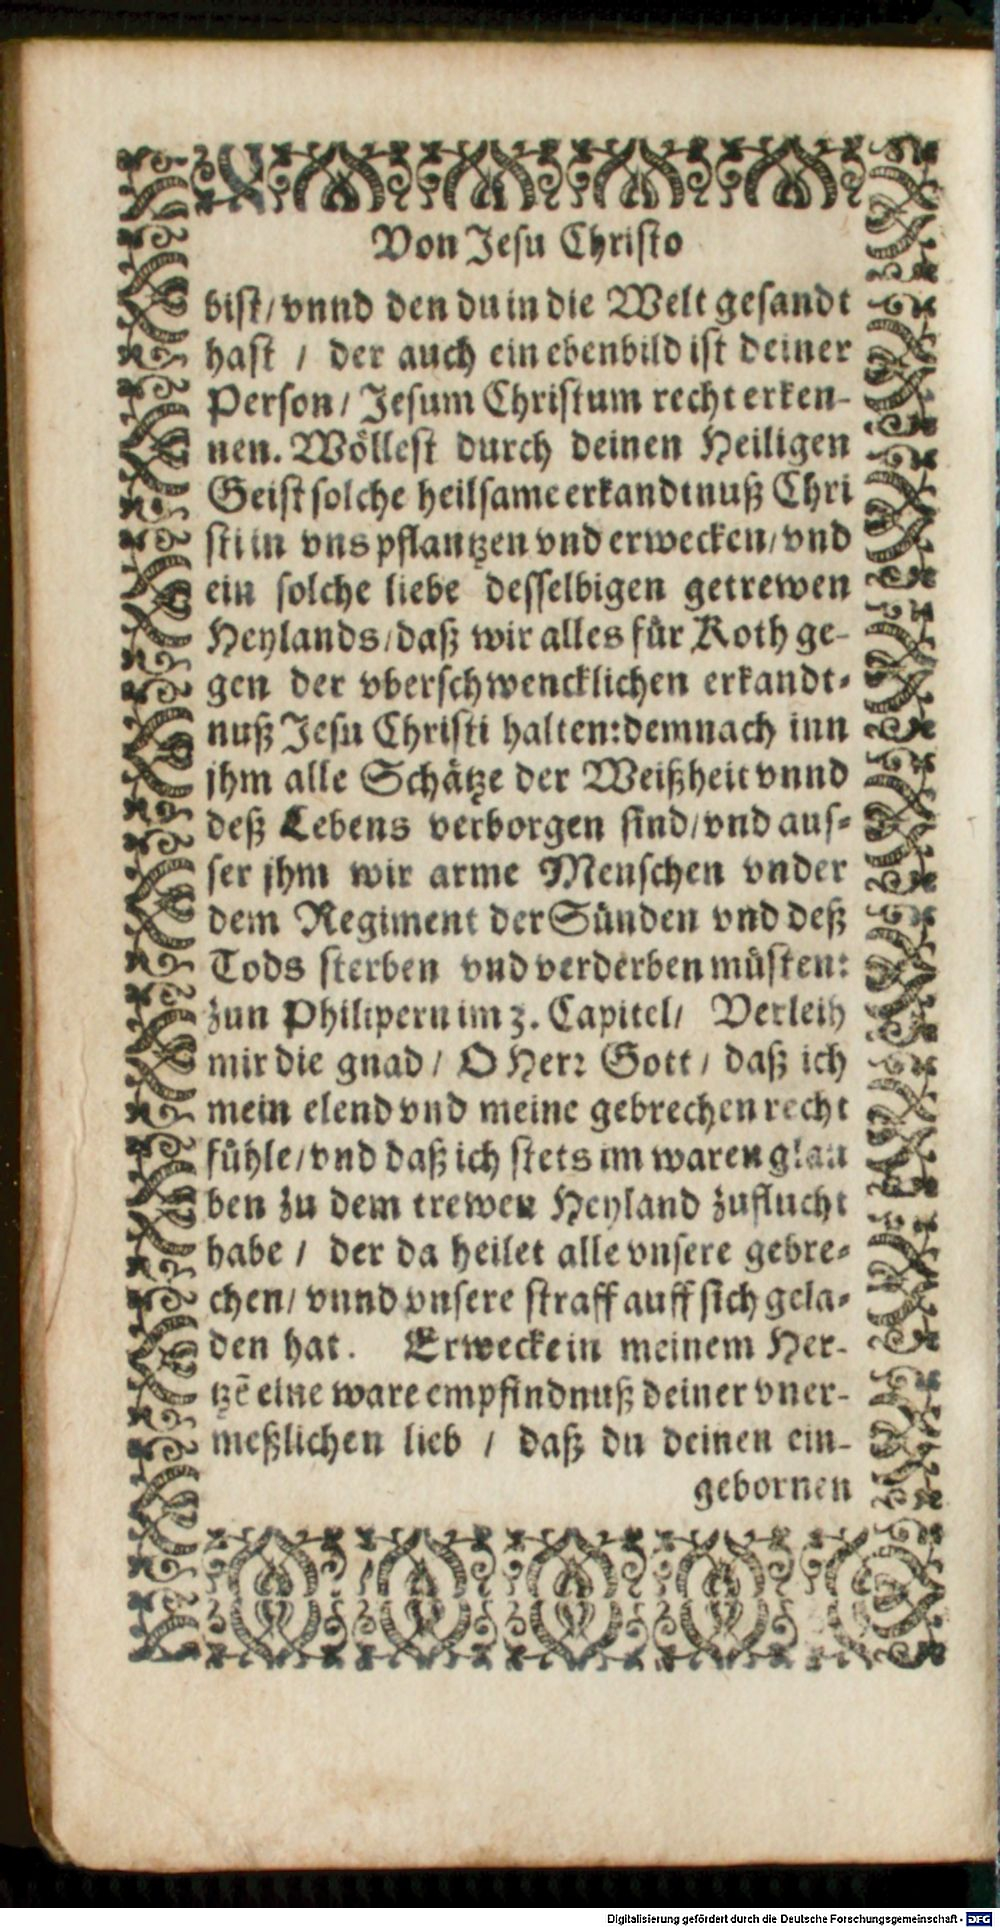 Von Jesu Christo
bist/ vnnd den du in die Welt gesandt
hast / der auch ein ebenbild ist deiner
Person/ Jesum Christum recht erken-
nen. Wöllest durch deinen Heiligen
Geist solche heilsame erkandtnuß Chri
sti in vns pflantzen vnd erwecken/ vnd
ein solche liebe desselbigen getrewen
Heylands/ daß wir alles für Koth ge-
gen der vberschwencklichen erkandt-
nuß Jesu Christi halten: demnach inn
jhm alle Schätze der Weißheit vnnd
deß Lebens verborgen sind/ vnd aus-
ser jhm wir arme Menschen vnder
dem Regiment der Sünden vnd deß
Tods sterben vnd verderben müsten:
zun Philipern im 3. Capitel/ Verleih
mir die gnad/ O Herr Gott/ daß ich
mein elend vnd meine gebrechen recht
fühle/ vnd daß ich stets im waren glau
ben zu dem trewen Heyland zuflucht
habe / der da heilet alle vnsere gebre-
chen/ vnnd vnsere straff auff sich gela-
den hat. Erwecke in meinem Her-
tzē eine ware empfindnuß deiner vner-
meßlichen lieb / daß du deinen ein-
gebornen
Digitalisierung gefördert durch die Deutsche Forschungsgemeinschaft - DFG